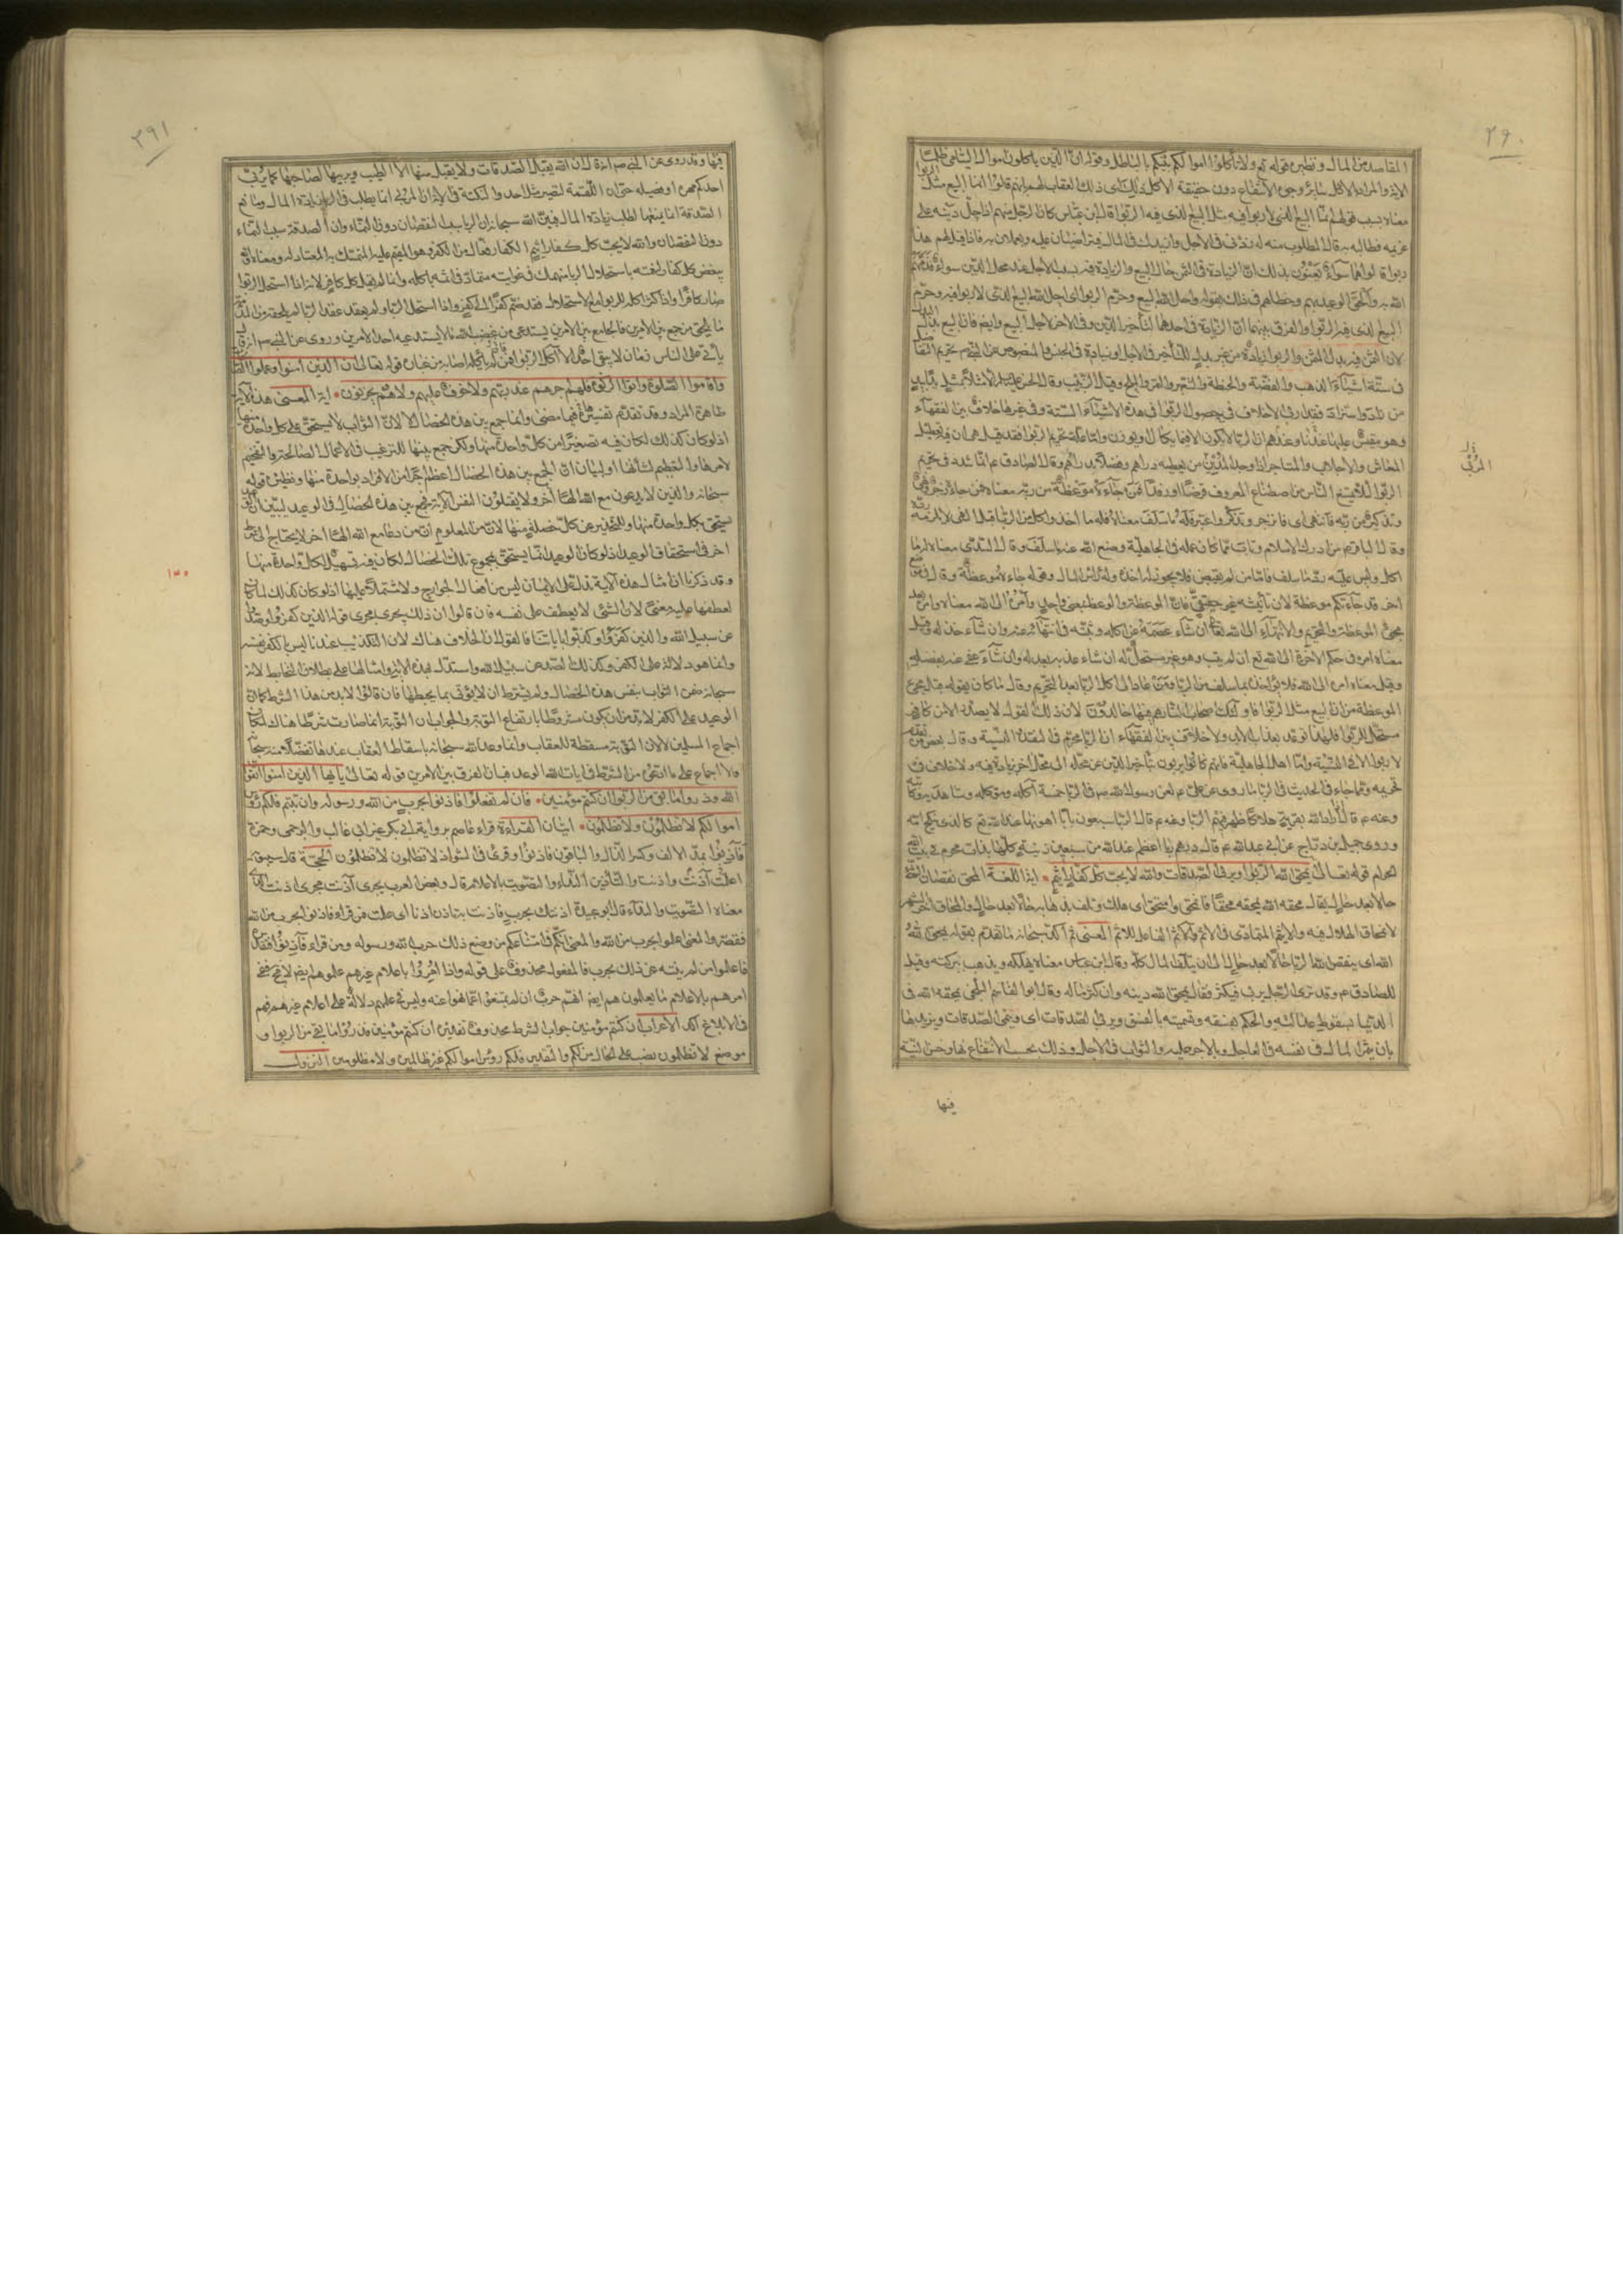 ٢٩٠
المقاصد من المال ونظيره قوله تع ولا تأكلوا اموالكم بينكم بالباطل وقوله ان الذين ياكلون اموال اليتامى ظلما
معناه بسبب قولهم انما البيع الذى لا ربوا فيه مثل البيع الذى فيه الربوا قال ابن عباس كان الرجل منهم اذا حل دينه على
غريمه فطالبه به قال المطلوب منه له زدنى فى الاجل وازيدك فى المال فيتراضيان عليه ويعملان به فاذا قيل لهم هذا
ربوا قالوا هما سواء يعنون بذلك ان الزيادة فى الثمن حال البيع والزيادة فيه بسبب الاجل عند محل الدين سواء فذمهم
الله به والحق الوعيد بهم وخطاهم فى ذلك بقوله واحل الله البيع وحرم الربوا اى احل الله البيع الذى لا ربوا فيه وحرم
البيع الذى فيه الربوا والفرق بينهما ان الزيادة فى احدهما لتأخير الدين وفى الاخر لاجل البيع وايضا فان البيع
لان الثمن فيه بدل المثمن والربوا زيادة من غير بدل للتأخير فى الاجل او زيادة فى الجنس والمنصوص عن النبى ص تحريم التفاضل
فى ستة اشياء الذهب والفضة والحنطة والشعير والتمر والملح وقيل الزبيب وقال الا مثلا بمثل يدا بيد
من زاد واستزاد فقد اربى لا خلاف فى حصول الربوا فى هذه الاشياء الستة وفى غيرها خلاف بين الفقهاء
وهو مقيس عليها عندهم وعندنا ان الربا لا يكون الا فيما يكال او يوزن واما علة تحريم الربوا فقد قيل هى ان فيه تعطيل
المعاش والاجلاب والمتاجر اذا وجد المربى من يعطيه دراهم وفضلا بدراهم وقال الصادق ع انما شدد فى تحريم
الربوا لئلا يمتنع الناس من اصطناع المعروف قرضا او رفدا فمن جاءه موعظة من ربه معناه فمن جاءه زجر ونهى
وتذكير من ربه فانتهى اى فانزجر وتذكر واعتبر فله ما سلف معناه فله ما اخذ واكل من الربا قبل النهى لا يلزمه رده
وقال الباقر ع من ادرك الاسلام وتاب مما كان عمله فى الجاهلية وضع الله عنه ما سلف وقال السدى معناه له ما
اكل وليس عليه رد ما سلف فاما من لم يقبض فلا يجوز له اخذه وله رأس المال وقوله جاءه موعظة وقال فى موضع
اخر قد جاءتكم موعظة لان تأنيثه غير حقيقى فان الموعظة والوعظ بمعنى واحد وامره الى الله معناه وامره بعد
مجئ الموعظة والتحريم والانتهاء الى الله ان شاء عصمه عن اكله وثبته فى انتهائه عنه وان شاء خذله وقيل
معناه امره فى حكم الاخرة الى الله تع ان لم يتب وهو غير مستحل له ان شاء عذبه بعدله وان شاء عفى عنه بفضله
وقيل معناه امره الى الله فلا يؤاخذه بما سلف من الربا ومن عاد الى اكل الربا بعد التحريم وقال ما كان يقوله قبل مجئ
الموعظة من ان البيع مثل الربوا فاولئك اصحاب النار هم فيها خالدون لان ذلك القول لا يصدر الا من كافر
مستحل للربوا فلهذا توعد بعذاب الابد ولا خلاف بين الفقهاء ان الربا محرم فى النقد والنسية وقال بعض من تقدم
لا ربوا الا فى النسية واما اهل الجاهلية فانهم كانوا يربون بتأخير الدين عن محله الى محل اخر بزيادة فيه ولا خلاف فى
تحريمه ومما جاء فى الحديث فى الربا ما روى عن على ع لعن رسول الله ص فى الربا خمسة آكله وموكله وشاهديه وكاتبه
وعنه ع قال اذا اراد الله بقرية هلاكا ظهر فيهم الربا وعنه ع قال الربا سبعون بابا اهونها عند الله تع كالذى ينكح امه
وروى جميل بن دراج عن ابى عبد الله ع قال درهم ربا اعظم عند الله من سبعين زنية كلها بذات محرم فى بيت الله
الحرام قوله تعالى يمحق الله الربوا ويربى الصدقات والله لا يحب كل كفار اثيم اية اللغة المحق نقصان الشئ
حالا بعد حال يقال محقه الله يمحقه محقا فانمحق وامتحق اى هلك وتلف بذهابه حالا بعد حال والمحاق اخر الشهر
لانمحاق الهلال فيه والاثيم المتمادى فى الاثم والآثم الفاعل للاثم المعنى ثم اكد سبحانه ما تقدم بقوله يمحق الله
الله اى ينقص الله الربا حالا بعد حال الى ان يتلف المال كله وقال ابن عباس معناه يهلكه ويذهب ببركته وقيل
للصادق ع وقد نرى الرجل يربى فيكثر فقال يمحق الله دينه وان كثر ماله وقال ابو القاسم البلخى يمحقه الله فى
الدنيا بسقوط عدالته والحكم بفسقه وتسميته بالفسق ويربى الصدقات اى وينمى الصدقات ويزيدها
بان يثمر المال فى نفسه فى العاجل وبالاجر عليه والثواب فى الاجل وذلك بحسب الانتفاع بها وحسن النية
فيها
٢٩١
فيها وقد روى عن النبى ص انه قال ان الله يقبل الصدقات ولا يقبل منها الا الطيب ويربيها لصاحبها كما يربى
احدكم مهره او فصيله حتى ان اللقمة لتصير مثل احد والنكتة فى الاية ان المربى انما يطلب فى الربا زيادة المال ومانع
الصدقة انما يمنعها لطلب زيادة المال فبين الله سبحانه ان الربا سبب النقصان دون النماء وان الصدقة سبب النماء
دون النقصان والله لا يحب كل كفار اثيم الكفار فعال من الكفر وهو المقيم عليه المتمسك به المعتاد له ومعناه انه
يبغض كل كفار لنعمته باستحلال الربا منهمك فى غوايته متماد فى اثمه باكله وانما لم يقل كل كافر لانه اذا استحل الربوا
صار كافرا واذا كثر اكله للربوا مع الاستحلال فقد ضم كفرا الى كفر
يأتى على الناس زمان لا يبقى احد الا اكل الربوا فمن لم يأكله اصابه من غباره قوله تعالى ان الذين امنوا وعملوا الصالحات
واقاموا الصلوة واتوا الزكوة لهم اجرهم عند ربهم ولا خوف عليهم ولا هم يحزنون اية المعنى هذه الاية
ظاهرة المراد وقد تقدم تفسيرها فيما مضى وانما جمع بين هذه الخصال لا لان الثواب لا يستحق على كل واحدة منها
اذ لو كان كذلك لكان فيه تصغير من كل واحدة منها ولكن جمع بينها للترغيب فى الاعمال الصالحة والتفخيم
لامرها والتعظيم لشأنها او لبيان ان الجمع بين هذه الخصال اعظم اجرا من الافراد بواحدة منها ونظيره قوله
سبحانه والذين لا يدعون مع الله الها آخر ولا يقتلون النفس الاية فجمع بين هذه الخصال فى الوعيد ليبين ان الوعيد
يستحق بكل واحدة منها وللتحذير عن كل خصلة منها لان من المعلوم ان من دعا مع الله الها اخر لا يحتاج الى شرط
اخر فى استحقاق الوعيد اذ لو كان الوعيد انما يستحق بمجموع تلك الخصال لكان فيه تسهيل لكل واحدة منها
وقد ذكرنا ان امثال هذه الاية تدل على ان الايمان ليس من افعال الجوارح ولا مشتملا عليها اذ لو كان كذلك لما كان
لعطفها عليه معنى لان الشئ لا يعطف على نفسه فان قالوا ان ذلك يجرى مجرى قوله الذين كفروا وصدوا
عن سبيل الله والذين كفروا وكذبوا باياتنا فالقول ان الخلاف هناك لان التكذيب عندنا ليس بالكفر نفسه
وانما هو دلالة على الكفر وكذلك الصد عن سبيل الله واستدل بهذه الاية وامثالها على بطلان التحابط لانه
سبحانه ضمن الثواب بنفس هذه الخصال ولم يشترط ان لا يؤتى بما يحبطها فان قالوا لا بد من هذا الشرط كما ان
الوعيد على الكفر لا بد من ان يكون مشروطا بارتفاع التوبة والجواب ان التوبة انما صارت شرطا هناك لمكان
اجماع المسلمين لا لان التوبة مسقطة للعقاب وانما وعد الله سبحانه باسقاط العقاب عندها تفضلا منه سبحانه
ولا اجماع على ما ادعى من الشرط فى ايات الوعد فبان الفرق بين الامرين قوله تعالى يا ايها الذين امنوا اتقوا
الله وذروا ما بقى من الربوا ان كنتم مؤمنين فان لم تفعلوا فاذنوا بحرب من الله ورسوله وان تبتم فلكم رؤس
اموالكم لا تظلمون ولا تظلمون ايتان القراءة قراء عاصم برواية ابى بكر غير ابن غالب والبرجمى وحمزة
فآذنوا بمد الالف وكسر الذال والباقون فاذنوا وقرئ فى الشواذ لا تظلمون لا تظلمون الحجة قال سيبويه
اعلمت آذنت واذنت والتأذين النداء والتصويت بالاعلام قال وبعض العرب يجرى آذنت مجرى اذنت الذى
معناه التصويت والنداء قال ابو عبيدة اذنتك بحرب فاذنت به تاذن اذنا اى علمت فمن قراء فاذنوا بحرب من الله
فقصر والمعنى اعلموا بحرب من الله والمعنى انكم فى امتناعكم من وضع ذلك حرب لله ورسوله ومن قراء فآذنوا فتقديره
فاعلموا من لم ينته عن ذلك بحرب فالمفعول محذوف على قوله واذا امروا باعلام غيرهم علموا هم ايضا لا محالة ففى
امرهم بالاعلام ما يعلمون هم ايضا انهم حرب ان لم يمتنعوا عما نهوا عنه وليس فى علمهم دلالة على اعلام غيرهم فهم
فى الابلاغ اكد الاعراب ان كنتم مؤمنين جواب الشرط محذوف تقديره ان كنتم مؤمنين فذروا ما بقى من الربوا و
موضع لا تظلمون نصب على الحال من لكم والتقدير فلكم رؤس اموالكم غير ظالمين ولا مظلومين النزول